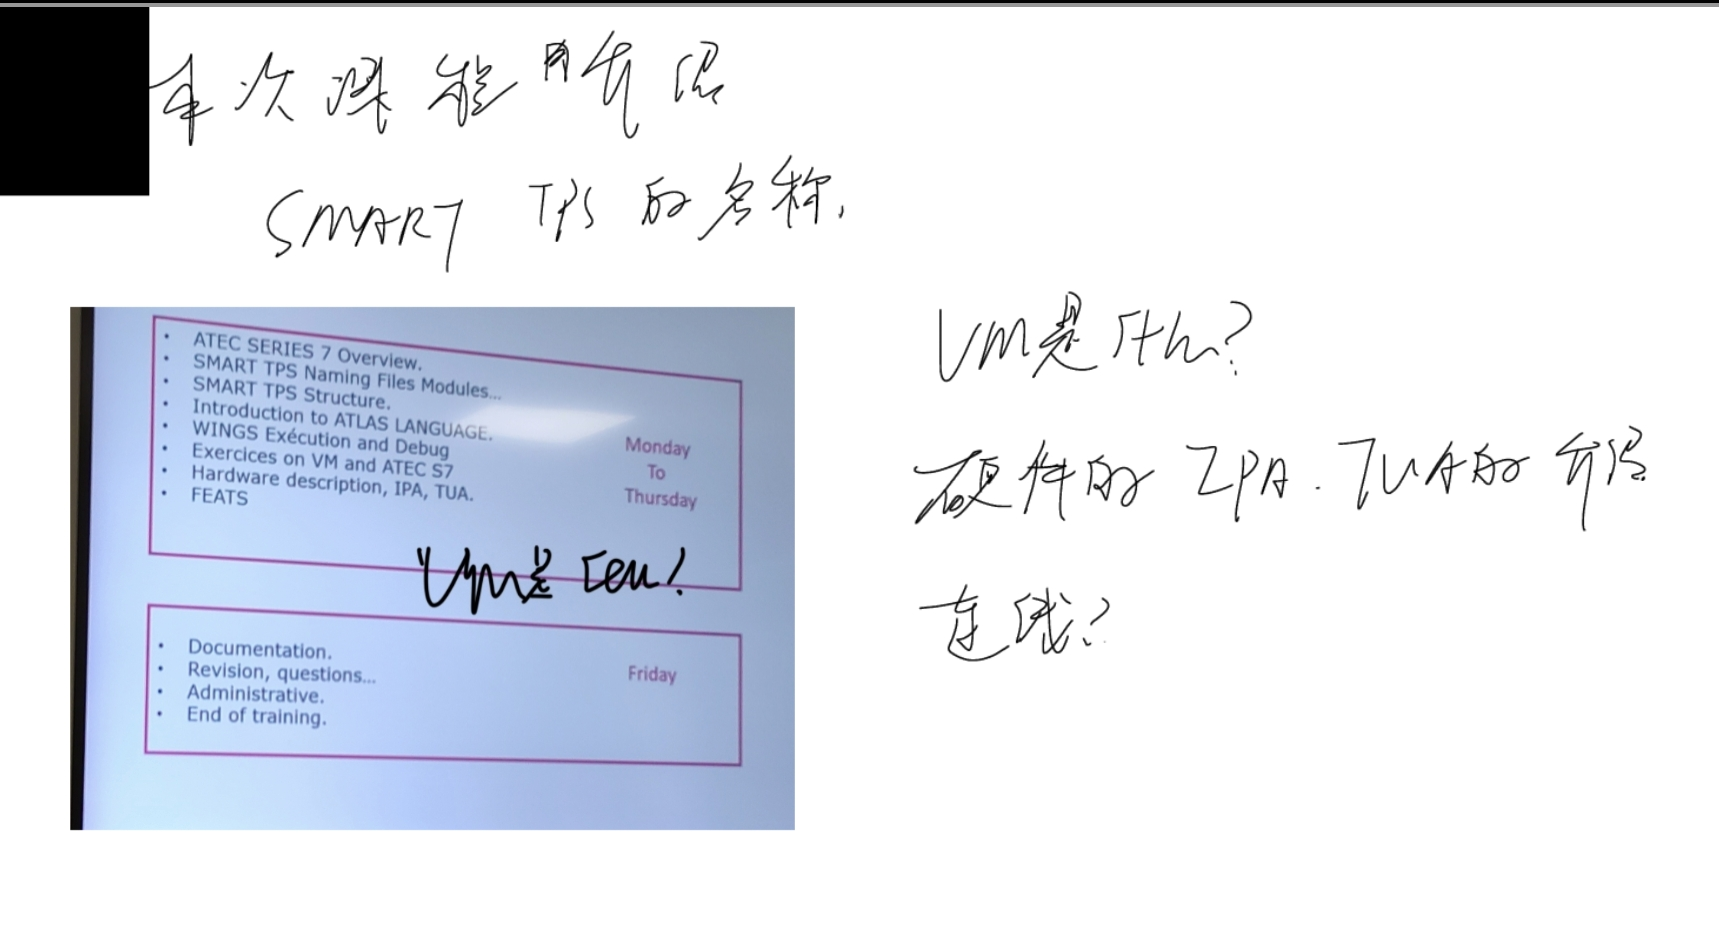 本次课程用介绍
SMART TPS的名称,
• ATEC SERIES 7 Overview.
• SMART TPS Naming Files Modules...
• SMART TPS Structure.
• Introduction to ATLAS LANGUAGE.
• WINGS Exécution and Debug
• Exercices on VM and ATEC S7
• Hardware description, IPA, TUA.
• FEATS
Monday
To
Thursday
VM是
• Documentation.
• Revision, questions...
• Administrative.
• End of training.
Friday
VM是什么?
硬件的IPA.TUA的介绍
连线?